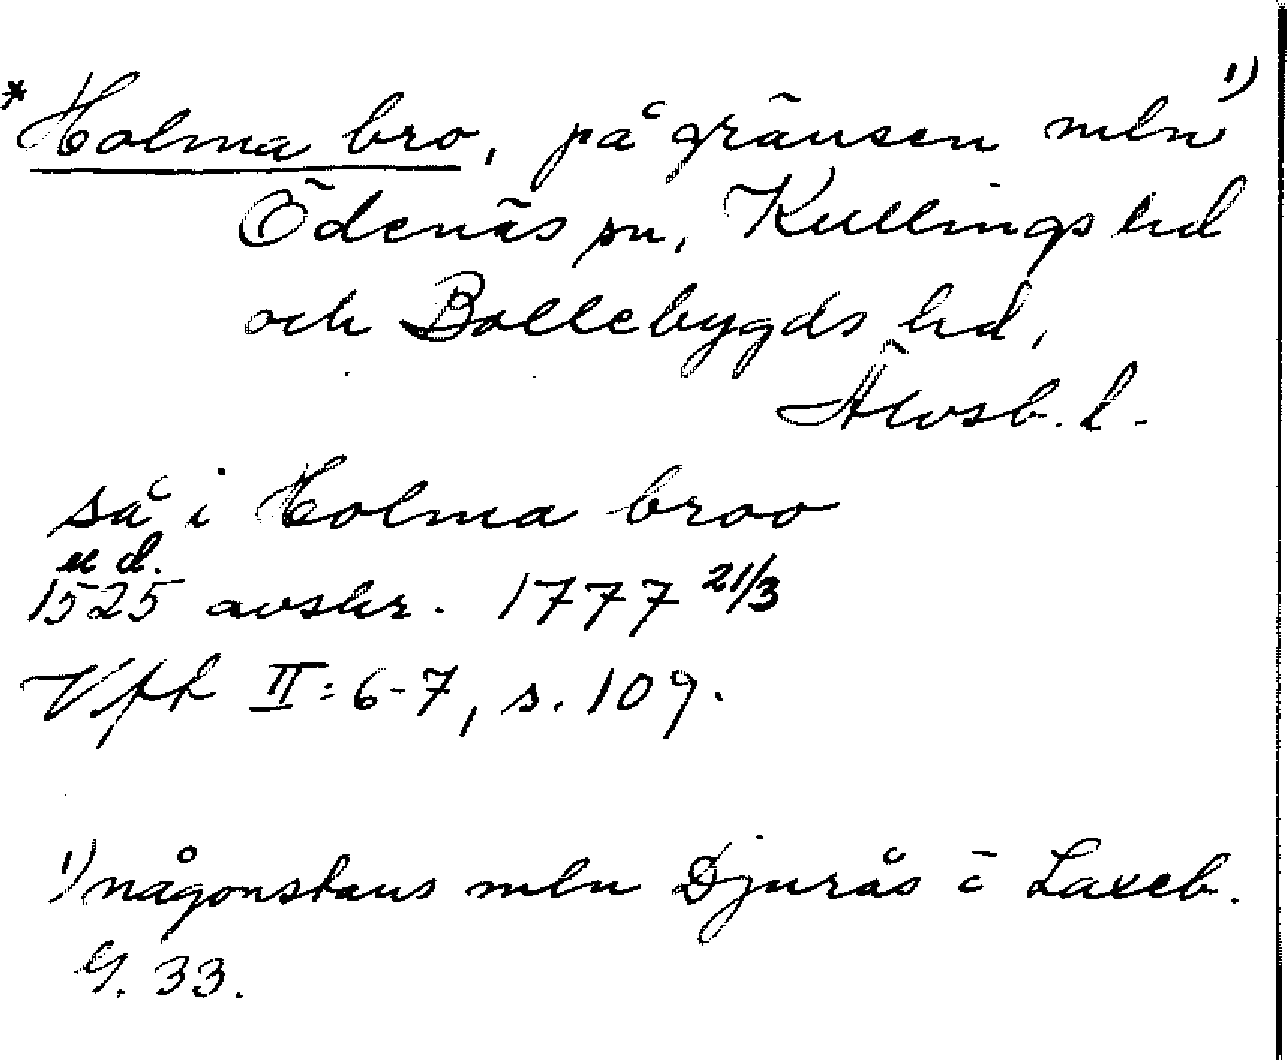 *Holma bro, på gränsen mln 1)
Ödenäs sn, Kullings hd
och Bollebygds hd,
Älvsb. l.
så i Holma broo
u d.
1525 avskr. 1777 21/3
Vfh II:6-7, s. 109.
1) någonstans mln Djurås o Laxeb.
G. 33.